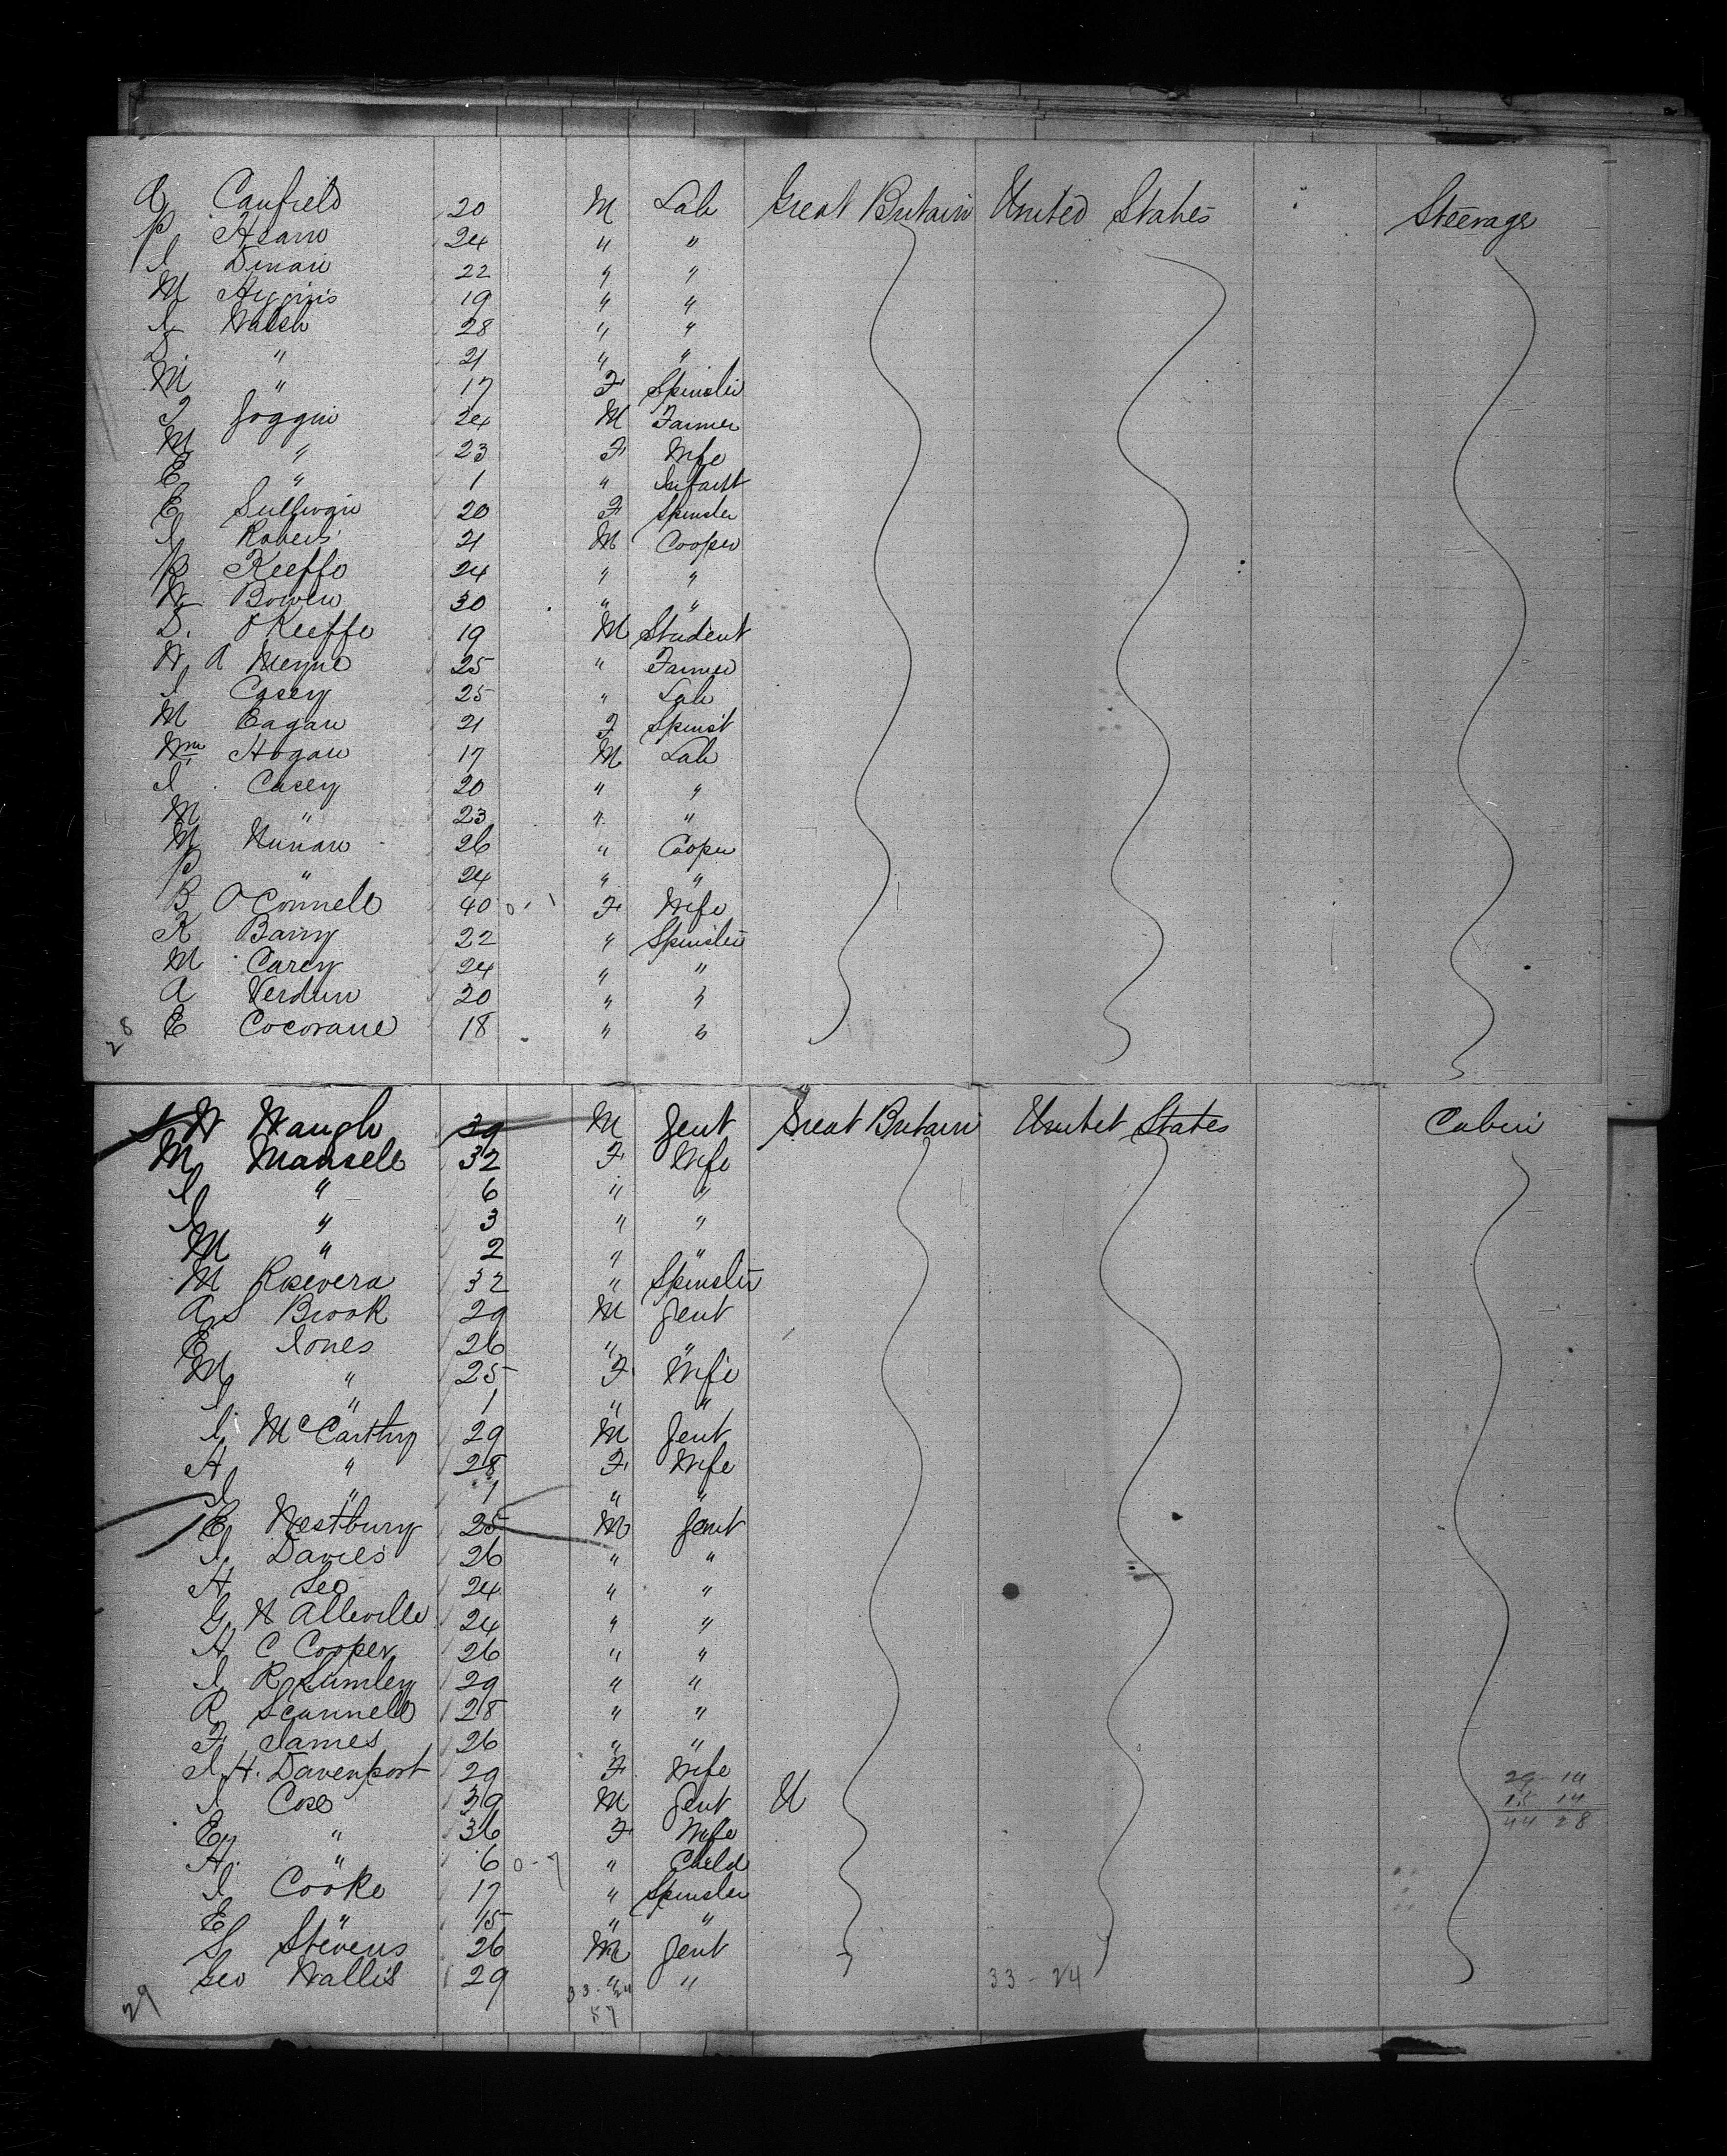 Canfield 20 M Lab Great Britain United States Steerage
P Hearn 24 " "
J Dinan 22 " "
M Higgins 19 " "
J Walsh 28 " "
D " 21 " "
M " 17 F Spinster
J Goggin 24 M Farmer
M " 23 F Wife
E " 1 " Infant
E Sullivan 20 F Spinster
J Roberts 21 M Cooper
P Keeffe 24 " "
W Bowen 30 " "
D. O'Keeffe 19 M Student
W A 25 " Farmer
J Casey 25 " Lab
M Eagan 21 F Spinst
Wm Hogan 17 M Lab
J Casey 20 " "
M " 23 " "
M Nunan 26 " Cooper
P " 24 " "
B O'Connell 40 F Wife
K Barry 22 " Spinster
M Carey 24 " "
A Verdun 20 " "
E Cocorane 18 " "
28
W Waugh 39 M Gent Great Britain United States Cabin
M Mansell 32 F Wife
J " 6 " "
J " 3 " "
M " 2 " "
M 32 " Spinster
A S Brook 29 M Gent
E Jones 26 " "
M " 25 F Wife
J " 1 " "
J McCarthy 29 M Gent
H " 28 F Wife
J " 1 " "
E Westbury 25 M Gent
J Davies 26 " "
H Leo 24 " "
G W Alleville 24 " "
H C Cooper 26 " "
J R Lumley 29 " "
R Scannell 28 " "
F James 26 " "
J H. Davenport 29 F Wife
J Cose 39 M Gent U
E " 36 F Wife
H. " 6 0-7 " Child
J Cooke 17 " Spinster
E " 15 " "
S Stevens 26 M Gent
Geo Wallis 29 " "
33-24
57
33-24
29-14
15 14
44 28
29